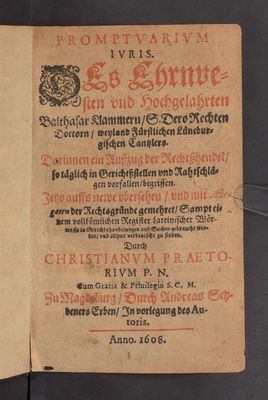 PROMPTVARIVM
IVRIS.
Des Ehrnve-
sten vnd Hochgelahrten
Balthasar Klammern / S. Ders Rechten
Doctorn / weyland Fürstlichen Lüneбur-
gischen Cantzlers.
Darinnen ein Außzug der Rechtßhendel /
so täglich in Gerichtßstellen vnd Rahtschlä-
gen vorfallen / begriffen.
Jetzo auffs newe vbersehen / vnd mit
der Rechtsgründe gemehret / Sampt ei-
nem vollkömlichen Register Lateinischer Wör-
in Gerichtshandelungen vnd Sachen gebraucht wer-
den / vnd allhier verdeutscht zu finden.
Durch
CHRISTIANVM PRAETO-
RIVM P. N.
Cum Gratia & Priuilegio S. C. M.
Zu Magdeburg / Durch Andreas Sey-
deners Erben / In vorlegung des Au-
toris.
Anno. 1608.